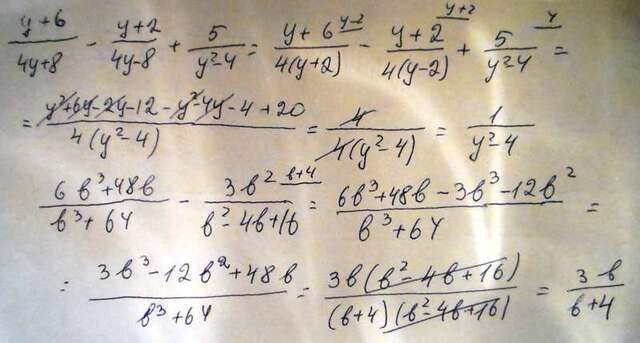 (y+6)/(4y+8) - (y+2)/(4y-8) + 5/(y²-4) = (y+6 ^{y-2})/(4(y+2)) - (y+2 ^{y+2})/(4(y-2)) + (5 ^{4})/(y²-4) =
= (y²+6y-2y-12-y²-4y-4+20)/(4(y²-4)) = 4/(4(y²-4)) = 1/(y²-4)
(6b³+48b)/(b³+64) - (3b² ^{b+4})/(b²-4b+16) = (6b³+48b-3b³-12b²)/(b³+64) =
= (3b³-12b²+48b)/(b³+64) = (3b(b²-4b+16))/((b+4)(b²-4b+16)) = 3b/(b+4)